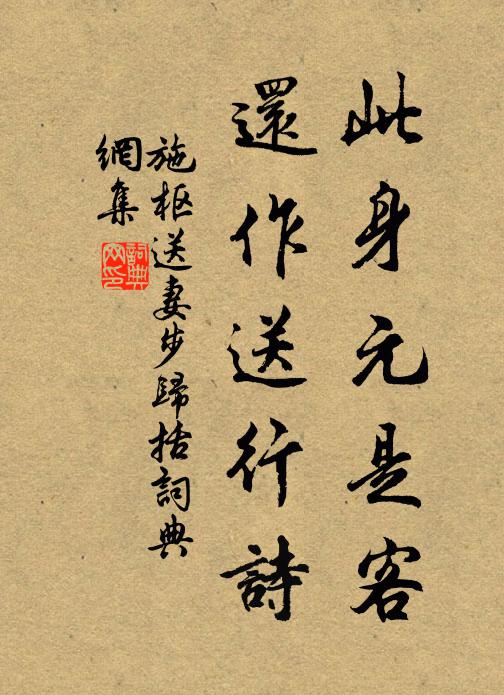 此身元是客
還作送行詩
施枢送妻步歸括詞典
網集
詞典
網印